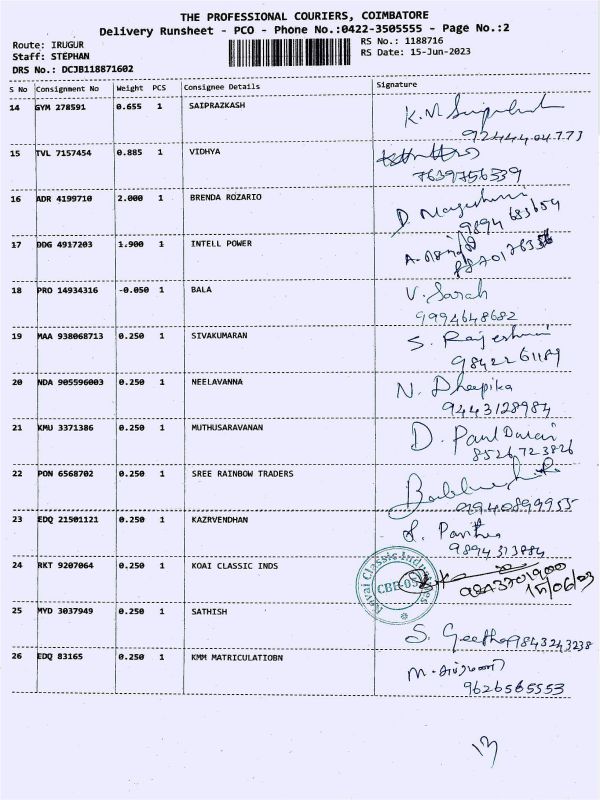 THE PROFESSIONAL COURIERS, COIMBATORE
Delivery Runsheet - PCO - Phone No.:0422-3505555 - Page No.:2
Route: IRUGUR
RS No.: 1188716
Staff: STEPHAN
RS Date: 15-Jun-2023
DRS No.: DCJB118871602
S No Consignment No Weight PCS Consignee Details Signature
14 GYM 278591 0.655 1 SAIPRAZKASH K.M
9244404773
15 TVL 7157454 0.885 1 VIDHYA
7639756339
16 ADR 4199710 2.000 1 BRENDA ROZARIO D. Mageshwari
9894683654
17 DDG 4917203 1.900 1 INTELL POWER A.
18 PRO 14934316 -0.050 1 BALA V. Sarah
9994648682
19 MAA 938068713 0.250 1 SIVAKUMARAN S. Rajeshwari
9842261189
20 NDA 905596003 0.250 1 NEELAVANNA N. Dheepika
9443128984
21 KMU 3371386 0.250 1 MUTHUSARAVANAN D. Paul Durai
8526723826
22 PON 6568702 0.250 1 SREE RAINBOW TRADERS
9940899955
23 EDQ 21501121 0.250 1 KAZRVENDHAN
9894313884
24 RKT 9207064 0.250 1 KOAI CLASSIC INDS
Kovai Classic Industries
15/06/23
25 MYD 3037949 0.250 1 SATHISH S. Geetha 9843243238
26 EDQ 83165 0.250 1 KMM MATRICULATIOBN M.
9626565553
13